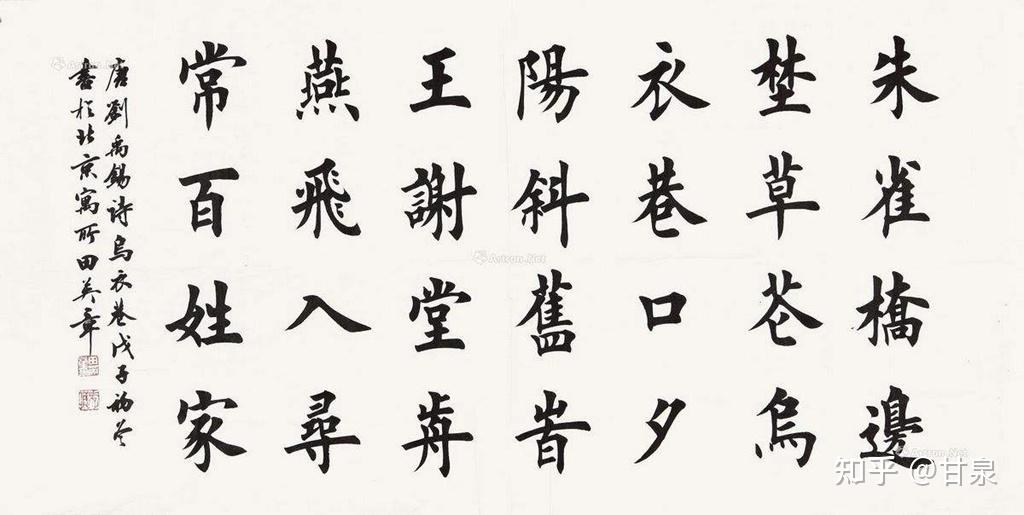 朱雀橋邊
埜草花烏
衣巷口夕
陽斜舊旹
王謝堂歬
燕飛入尋
常百姓家
唐劉禹锡诗烏衣巷戊子初冬
書於北京寓所田英章
Artron.Net
知乎 @甘泉